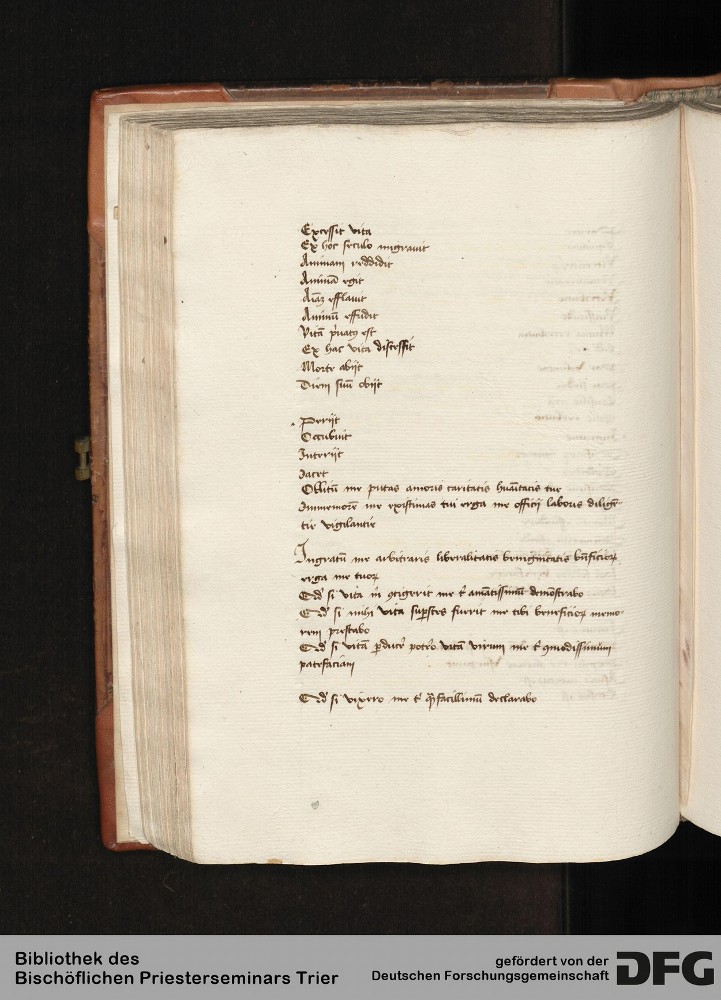 Excessit vita
Ex hoc seculo migravit
Animam reddidit
Animā egit
Aīaʒ efflavit
Animū effudit
Vitā p̄vatꝰ est
Ex hac vita discessit
Morte abijt
Diem suū obijt
Perijt
Occubuit
Interijt
Jacet
Oblitū me putas amoris caritatis huātatis tue
Immemorē me existimas tui erga me officij laboris diligē-
tie vigilantie
Ingratū me arbitraris liberalitatis benignitatis bn̄ficioꝝ
erga me tuoꝝ
si vita m ꝯtigerit me t̄ amātissimū demōstrabo
si mihi vita suꝑstes fuerit me tibi beneficioꝝ memo-
rem prestabo
si vitā ꝑducē potero vitā virum me t̄ ꝯmodissimum
patefaciam
si vixero me t̄ facillimū declarabo
Bibliothek des
Bischöflichen Priesterseminars Trier
gefördert von der
Deutschen Forschungsgemeinschaft DFG